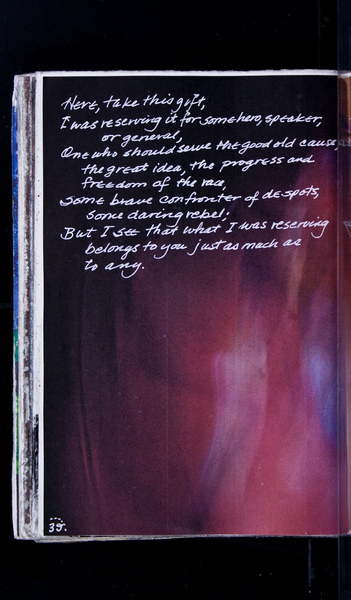 Here, take this gift,
I was reserving it for some hero, speaker,
or general,
One who should serve the good old cause,
the great idea, the progress and
freedom of the race,
Some brave confronter of despots,
some daring rebel;
But I see that what I was reserving
belongs to you just as much as
to any.
39.